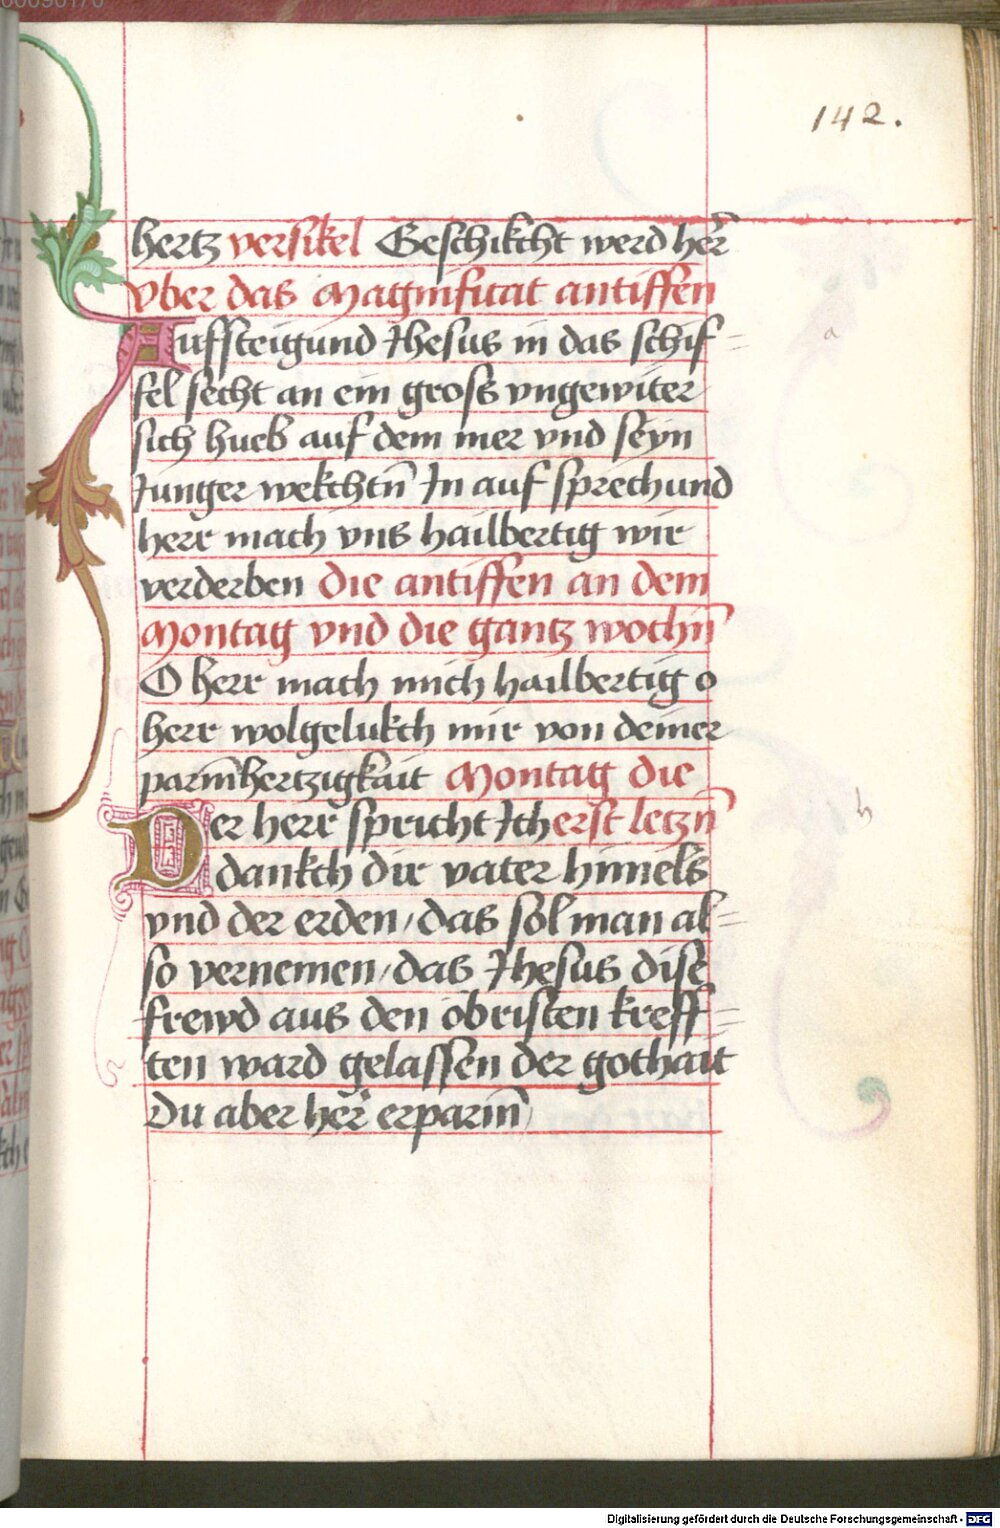 142.
hertz versikel Geschikcht werd her̄
vber das Magnificat antiffen
Auffsteigund Jhesus in das schif=
fel secht an ein gross vngewiter
sich hueb auf dem mer vnd seyn
Junger wekchtn̄ Jn auf sprechund
herr mach vns hailbertig wir
verderben die antiffen an dem
Montag vnd die gantz wochn̄
O herr mach mich hailbertig o
herr wolgelukch mir von deiner
parm̄hertzigkait Montag die
Der herr spricht Jch erst letzn̄
dankch dir vater himels
vnd der erden / das sol man al=
so vernemen / das Jhesus dise
frewd aus den öbristen kreff=
ten ward gelassen der gothait
Du aber her̄ erparm̄
a
h
Digitalisierung gefördert durch die Deutsche Forschungsgemeinschaft - DFG